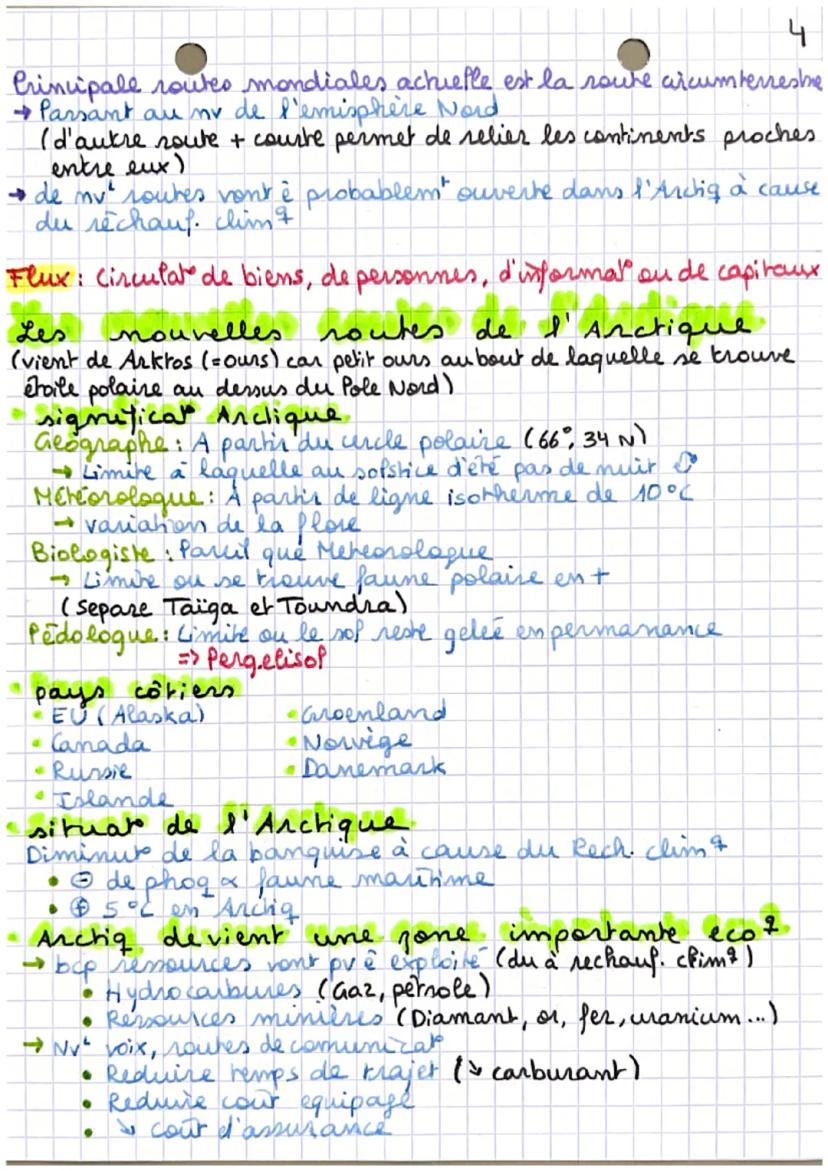 4
Principale routes mondiales actuelle est la route circumterrestre
→ Passant au nv de l'emisphère Nord
(d'autre route + courte permet de relier les continents proches
entre eux)
→ de nvˡ routes vont ê problablemᵗ ouverte dans l'Arctiq à cause
du réchauf. climq
Flux : Circulat° de biens, de personnes, d'informat° ou de capitaux
Les nouvelles routes de l'Arctique
(vient de Arktos (=ours) car petit ours au bout de laquelle se trouve
étoile polaire au dessus du Pole Nord)
• significat° Arctique
Géographe : A partir du cercle polaire (66°, 34 N)
→ Limite à laquelle au solstice d'été pas de nuit
Météorologue : A partir de ligne isotherme de 10°C
→ variation de la flore
Biologiste : Pareil que Meteorologue
→ Limite ou se trouve faune polaire en +
(separe Taïga et Toundra)
Pédologue : Limite ou le sol reste geleé en permanance
=> Pergelisol
• pays côtiers
• EU (Alaska) • Groenland
• Canada • Norvège
• Russie • Danemark
• Islande
• situat° de l'Arctique
Diminut° de la banquise à cause du Rech. climq
• ⊖ de phoq ∝ faune maritime
• ⊕ 5°C en Arctiq
• Arctiq devient une zone importante ecoq
→ bcp ressources vont pv ê exploité (du à rechauf. climq)
• Hydrocarbures (Gaz, pétrole)
• Ressources minières (Diamant, or, fer, uranium...)
→ Nvˡ voix, routes de comunicat°
• Reduire temps de trajet (↘ carburant)
• Reduire coût equipage
• ↘ coût d'assurance